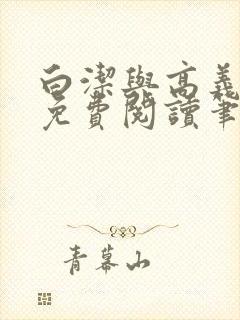 白潔與高義
免費閱讀筆
青幕山